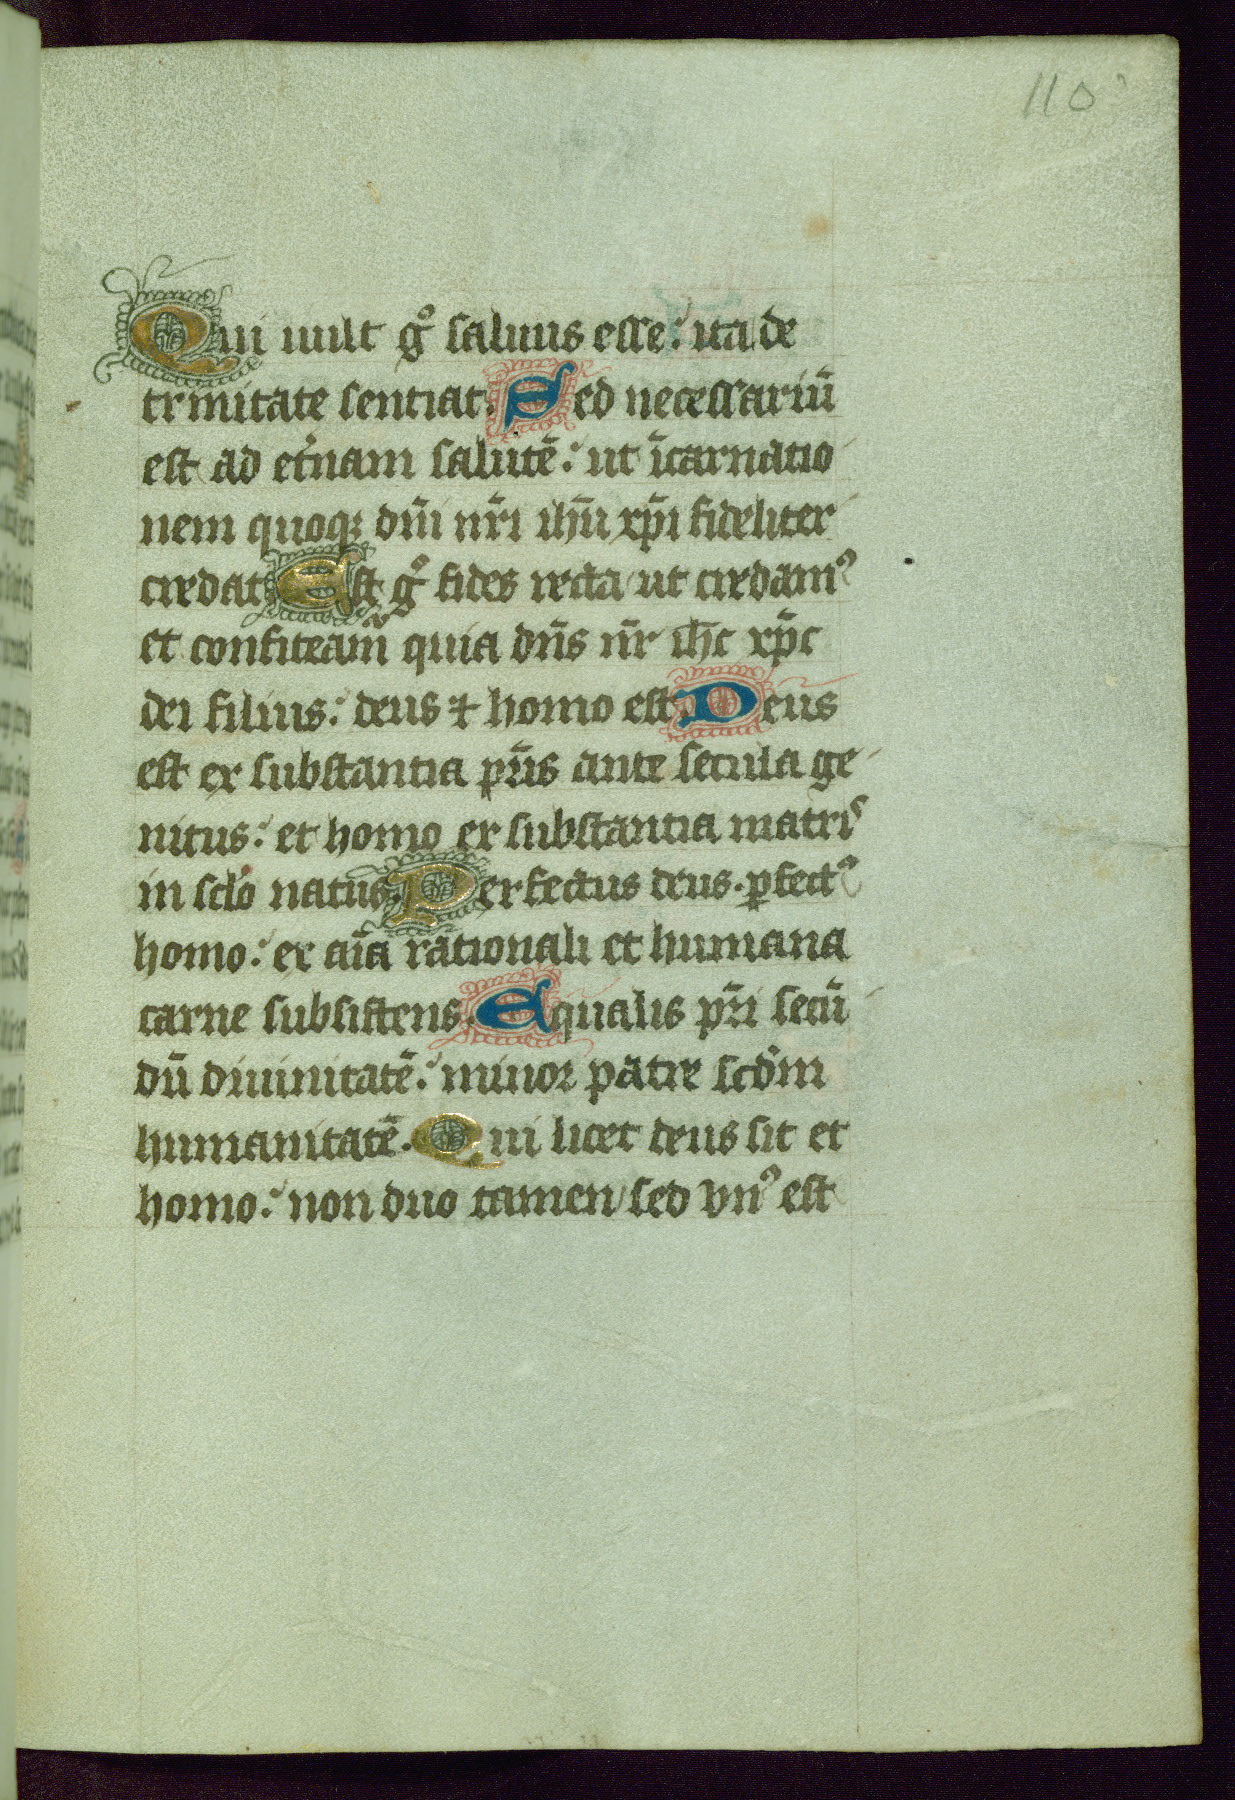 110
Qui vult gͦ saluus esse: ita de
trinitate sentiat. Sed necessariū
est ad et̾nam salutē: ut īcarnatio
nem quoqꝫ dn̄i nr̄i ihū xp̄i fideliter
credat. Est gͦ fides recta ut credamꝰ
et confiteam̃ quia dn̄s nr̄ ihc̄ xp̄c
dei filius: deus ⁊ homo est. Deus
est ex substantia pr̄is ante secula ge
nitus: et homo ex substantia matrͥs
in sclo̾ natus. Perfectus deus. ꝑfectꝰ
homo: ex aīa rationali et humana
carne subsistens. Equalis pr̄i secū
dū diuinitatē: minor patre scdm̄
humanitatē. Qui licet deus sit et
homo: non duo tamen sed vnꝰ est